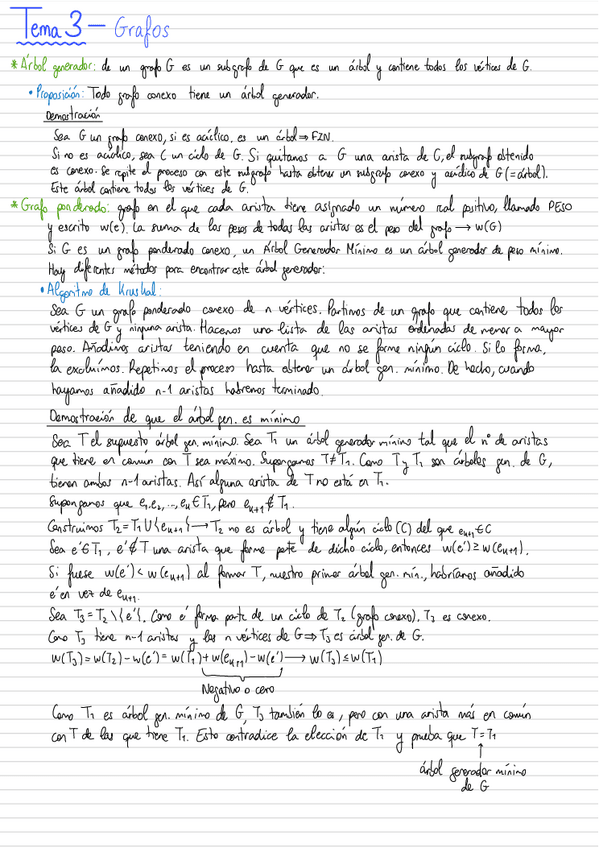 Tema 3 - Grafos
* Árbol generador: de un grafo G es un subgrafo de G que es un árbol y contiene todos los vértices de G.
• Proposición: Todo grafo conexo tiene un árbol generador.
Demostración
Sea G un grafo conexo, si es acíclico, es un árbol ⇒ FIN.
Si no es acíclico, sea C un ciclo de G. Si quitamos a G una arista de C, el subgrafo obtenido
es conexo. Se repite el proceso con este subgrafo hasta obtener un subgrafo conexo y acíclico de G (= árbol).
Este árbol contiene todos los vértices de G.
* Grafo ponderado: grafo en el que cada arista tiene asignado un número real positivo, llamado PESO
y escrito w(e). La suma de los pesos de todas las aristas es el peso del grafo → w(G)
Si G es un grafo ponderado conexo, un Árbol Generador Mínimo es un árbol generador de peso mínimo.
Hay diferentes métodos para encontrar este árbol generador:
• Algoritmo de Kruskal:
Sea G un grafo ponderado conexo de n vértices. Partimos de un grafo que contiene todos los
vértices de G y ninguna arista. Hacemos una lista de las aristas ordenadas de menor a mayor
peso. Añadimos aristas teniendo en cuenta que no se forme ningún ciclo. Si lo forma,
la excluimos. Repetimos el proceso hasta obtener un árbol gen. mínimo. De hecho, cuando
hayamos añadido n-1 aristas habremos terminado.
Demostración de que el árbol gen. es mínimo
Sea T el supuesto árbol gen. mínimo. Sea T₁ un árbol generador mínimo tal que el nº de aristas
que tiene en común con T sea máximo. Supongamos T≠T₁. Como T y T₁ son árboles gen. de G,
tienen ambos n-1 aristas. Así alguna arista de T no está en T₁.
Supongamos que e₁, e₂, ..., eₖ ∈ T₁, pero eₖ₊₁ ∉ T₁.
Construimos T₂ = T₁ ∪ {eₖ₊₁} → T₂ no es árbol y tiene algún ciclo (C) del que eₖ₊₁ ∈ C
Sea e' ∈ T₁, e' ∉ T una arista que forme parte de dicho ciclo, entonces w(e') ≥ w(eₖ₊₁).
Si fuese w(e') < w(eₖ₊₁) al formar T, nuestro primer árbol gen. mín., habríamos añadido
e' en vez de eₖ₊₁.
Sea T₃ = T₂ \ {e'}. Como e' forma parte de un ciclo de T₂ (grafo conexo), T₃ es conexo.
Como T₃ tiene n-1 aristas y las n vértices de G ⇒ T₃ es árbol gen. de G.
w(T₃) = w(T₂) - w(e') = w(T₁) + w(eₖ₊₁) - w(e') → w(T₃) ≤ w(T₁)
Negativo o cero
Como T₁ es árbol gen. mínimo de G, T₃ también lo es, pero con una arista más en común
con T de las que tiene T₁. Esto contradice la elección de T₁ y prueba que T = T₁
árbol generador mínimo
de G